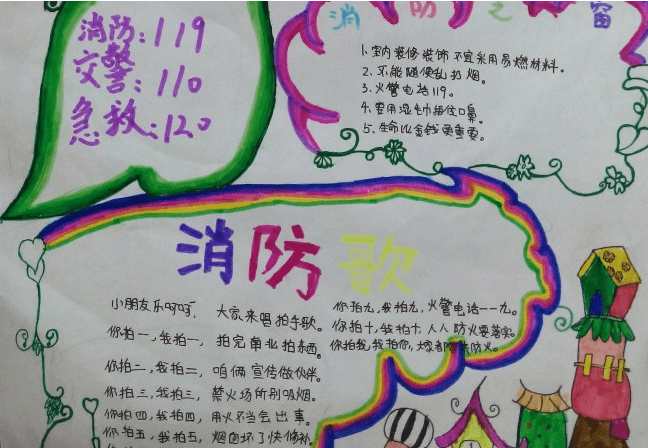 消防:119
交警:110
急救:120
消防之窗
1.室内装修装饰不宜采用易燃材料。
2.不能随便乱扔烟。
3.火警电话119。
4.要用湿毛巾捂住口鼻。
5.生命比金钱更重要。
消防歌
小朋友乐呵呵, 大家来唱拍手歌。
你拍一,我拍一, 拍完单业拍东西。
你拍二,我拍二, 咱俩宣传做伙伴。
你拍三,我拍三, 禁火场所别吸烟。
你拍四,我拍四, 用火不当会出事。
你拍五,我拍五, 烟囱坏了快修补
你拍九,我拍九,火警电话一一九。
你拍十,我拍十,人人防火要落实。
你拍我,我拍你,大家都
防火。